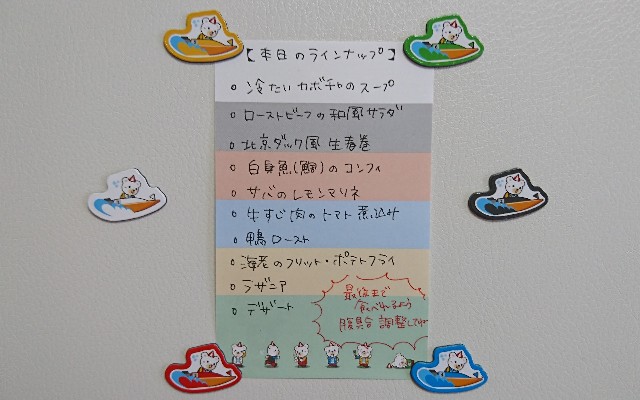 【本日のラインナップ】
○ 冷たいカボチャのスープ
○ ローストビーフの和風サラダ
○ 北京ダック風 生春巻
○ 白身魚(鯛)のコンフィ
○ サバのレモンマリネ
○ 牛すじ肉のトマト煮込み
○ 鴨ロースト
○ 海老のフリット・ポテトフライ
○ ラザニア
○ デザート
最後まで
食べれるよう
腹具合 調整してネ